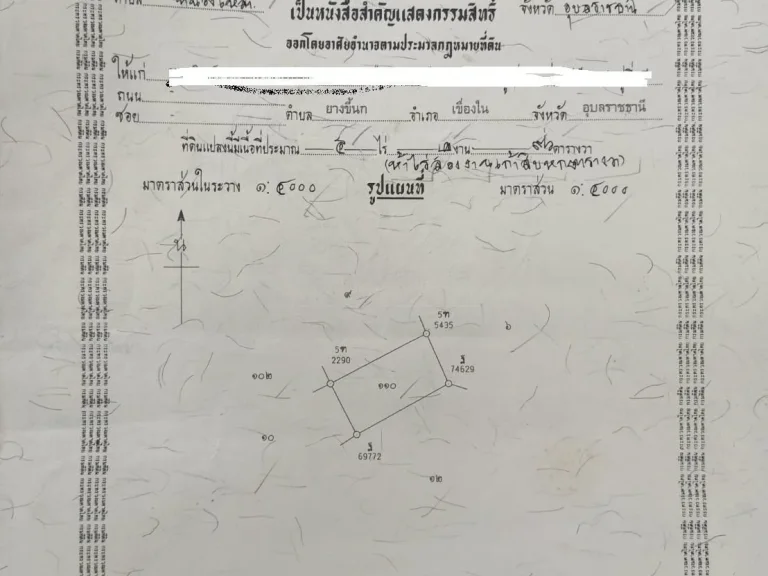 ตำบล จังหวัด อุบลราชธานี
เป็นหนังสือสำคัญแสดงกรรมสิทธิ์
ออกโดยอาศัยอำนาจตามประมวลกฎหมายที่ดิน
ให้แก่
ถนน
ซอย ตำบล ยางขี้นก อำเภอ เขื่องใน จังหวัด อุบลราชธานี
ที่ดินแปลงนี้มีเนื้อที่ประมาณ ๕ ไร่ ๒ งาน ๙๖ ตารางวา
(ห้าไร่สองงานเก้าสิบหกตารางวา)
มาตราส่วนในระวาง ๑:๔๐๐๐ รูปแผนที่ มาตราส่วน ๑:๔๐๐๐
น
๙
5ท
5435
๖
5ท
2290
ฐ
74629
๑๐๒
๑๑๐
๑๐
ฐ
69772
๑๒